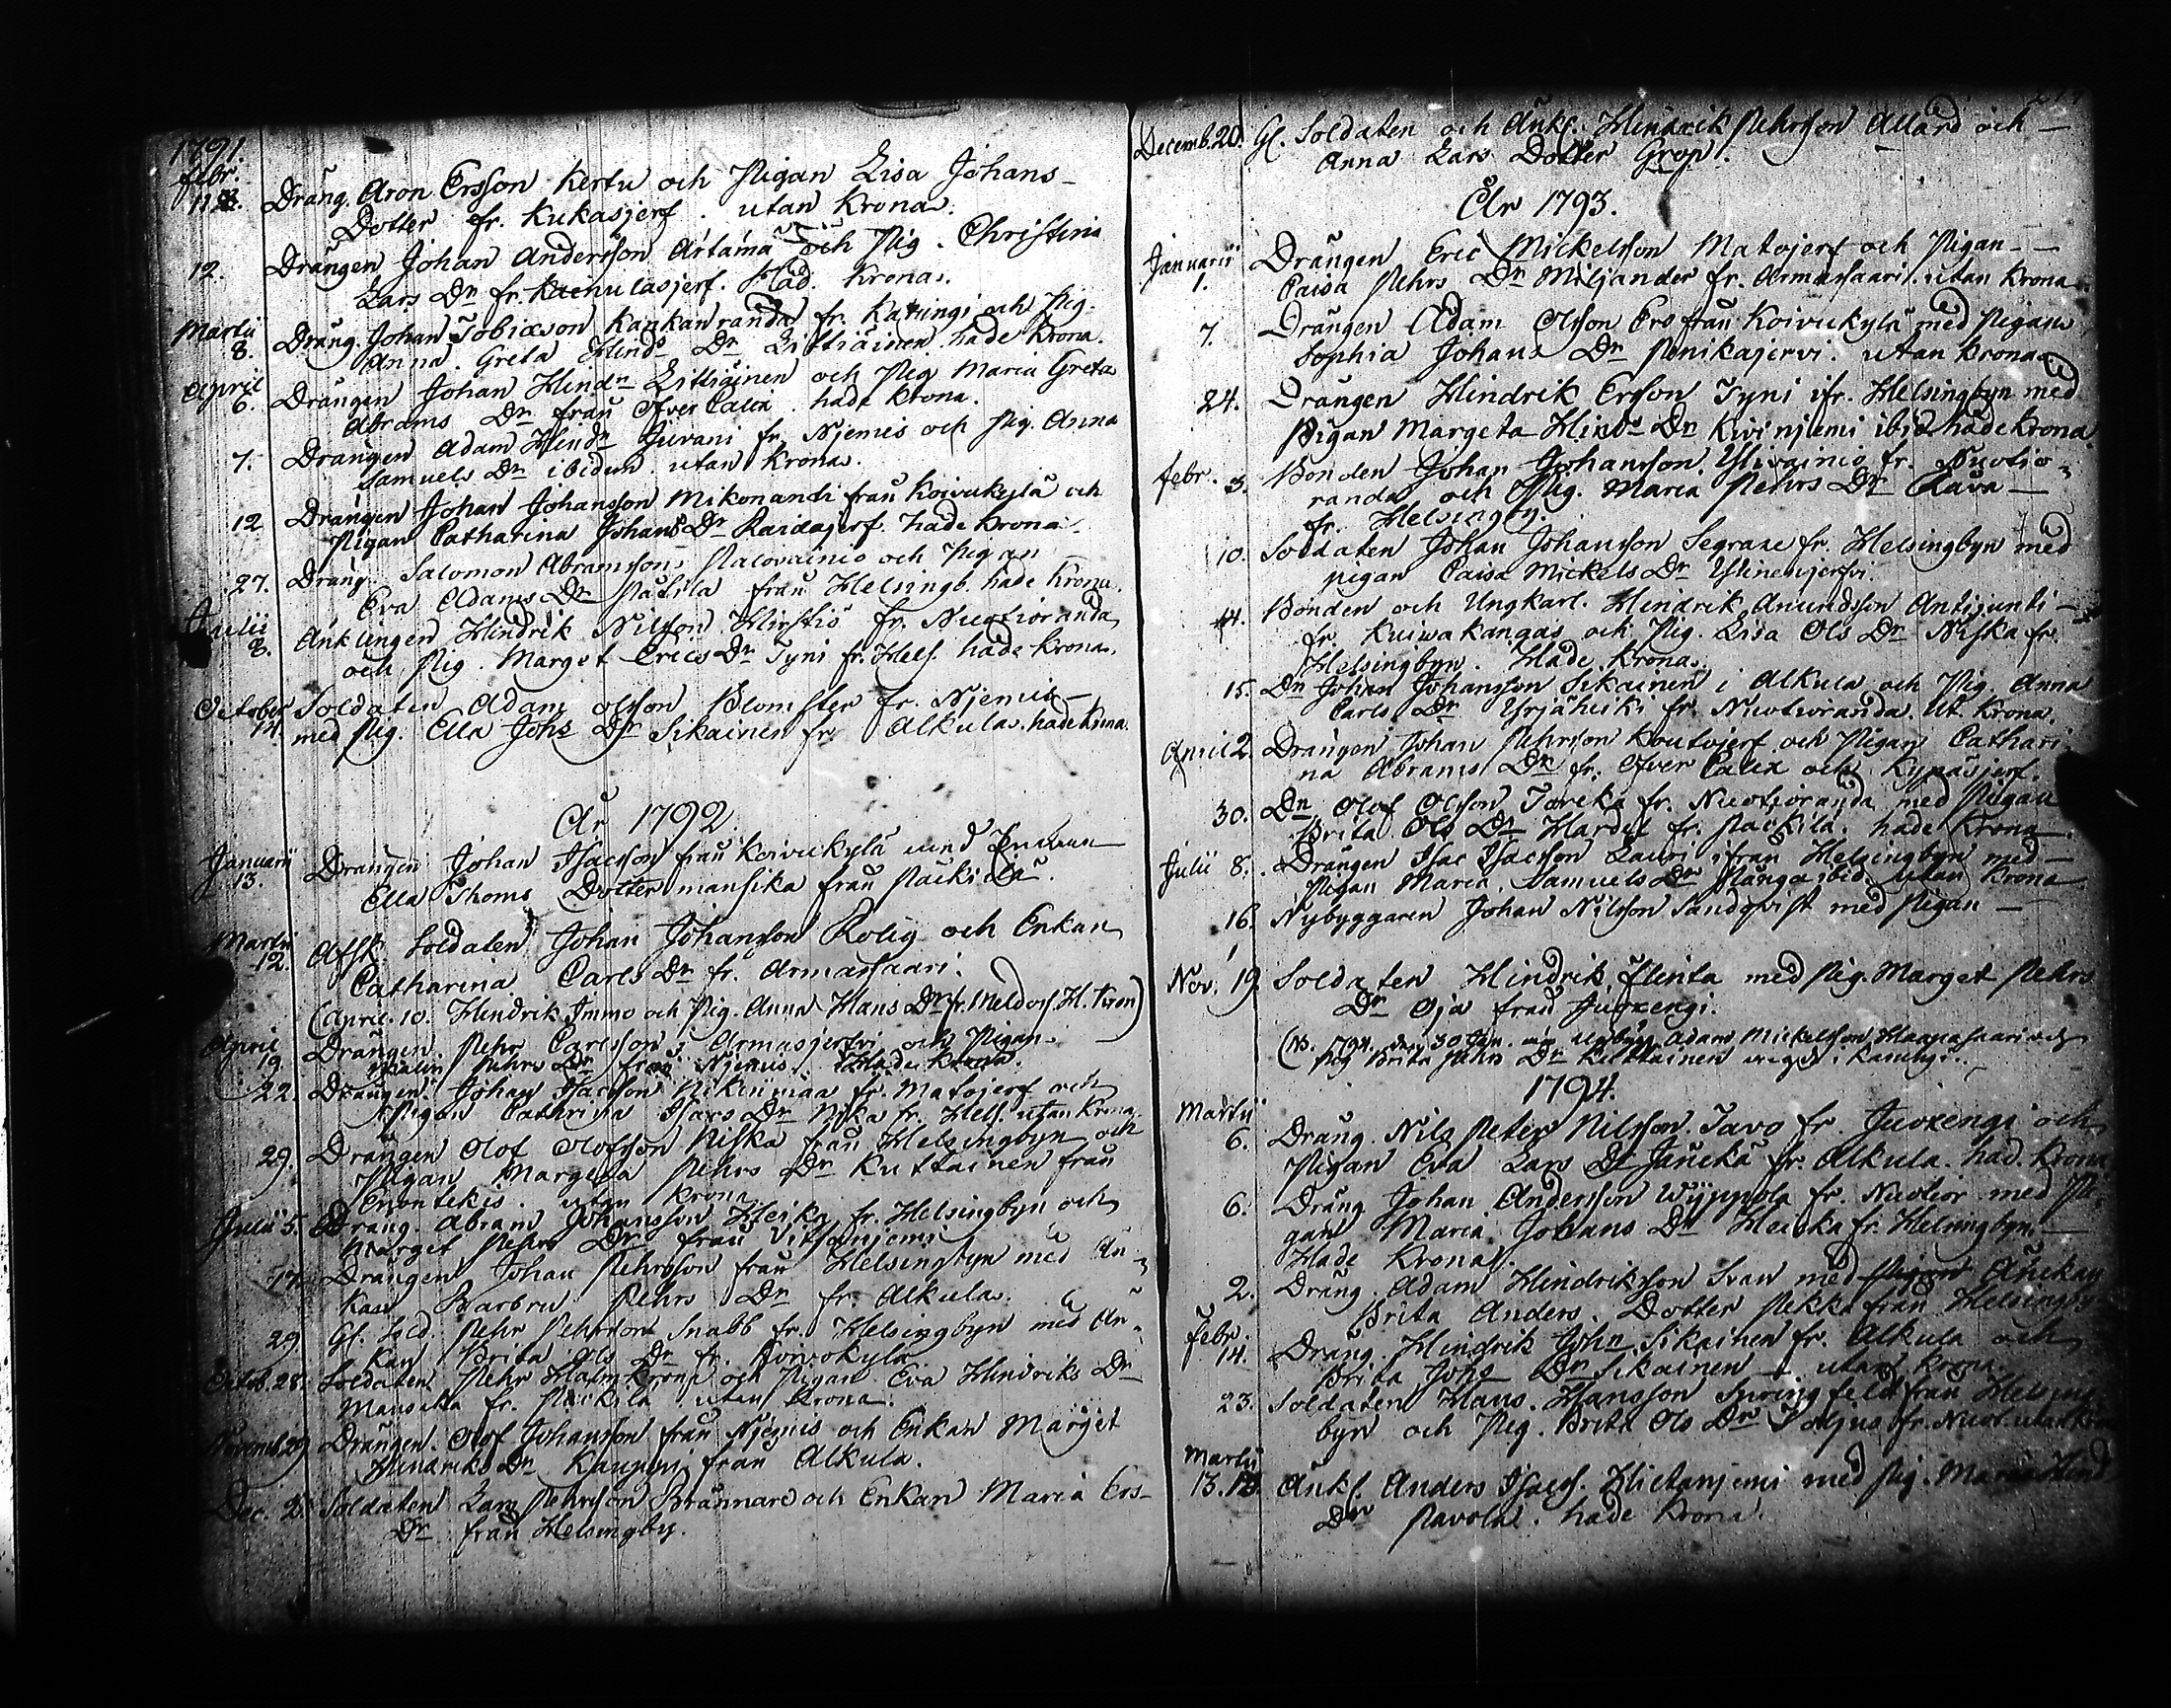 1791.
Febr.
Dräng. Aron Ersson Kertu och Pigan Lisa Johans-
Dotter fr. Kukasjerf. utan Krona.
12. Drängen Johan Andersson Artama och Pig. Christina
Lars Dr fr. Kainulasjerf. Had. Krona.
Martii
8. Dräng. Johan Tobiæson Kankanranda fr. Karungi och Pig.
Anna Greta Hinds Dr hade Krona.
April
6. Drängen Johan Hindr och Pig Maria Greta
Abrams Dr från Öfver Calix hade Krona.
7. Drängen Adam Hindr Juvani fr. Njemis och Pig. Anna
Samuels Dr ibidem utan Krona.
12 Drängen Johan Johansson Mikonandi från Koivukylä och
Pigan Catharina Johans Dr Raidajerf hade Krona.
27. Dräng. Salomon Abramsson Palovainio och Pigan
Eva Adams Dr från Helsingb. hade Krona.
Julii
8. Änklingen Hindrik Nilsson Hirstiö fr. Nuotioranda
och Pig. Marget Erics Dr Tyni fr. Hels. hade Krona.
October
14. Soldaten Adam Olsson Blomster fr. Njemis
med Pig. Ella Johs Dr Sikainen fr. Alkula. hade Krona
År 1792
Januarii
13. Drängen Johan Isacsson från Koivukylä med
Ella Thoms Dotter Mansika från Päckilä.
Martii
12. Afsk. Soldaten Johan Johansson Rolig och Enkan
Catharina Carls Dr fr. Armassaari.
(April. 10. Hindrik Immo och Pig. Anna Hans Dr fr. Meldors. H. Kron)
April
19. Drängen Pehr Carlsson i Armasjerfvi och Pigan
Malin Pehrs Dr från Njemis. Hade Krona.
22. Drängen Johan Isacsson Nikumaa fr. Matojerf och
Pigan Cathrina Isacs Dr Niska fr. Hels. utan Krona
29. Drängen Olof Olofsson Niska från Helsingbyn och
Pigan Margeta Pehrs Dr Kuttainen från
Enontekis. utan Krona
Julii 5. Dräng. Abram Johansson Heika fr. Helsingbyn och
Marget Pehrs Dr från Vitsanjemi
17. Drängen Johan Pehrsson från Helsingbyn med Än-
kan Barbru Pehrs Dr fr. Alkula.
29. Gl. Sold. Pehr Pehrsson Snabb fr. Helsingbyn med Än-
kan Brita Ols Dr fr. Koivokylä
Octob. 28. Soldaten Pehr Malmkrona och Pigan Eva Hindriks Dr
Mansikka fr. Päckilä utan Krona.
Novemb. 29 Drängen Olof Johansson från Njemis och Enkan Marget
Hindriks Dr Kauppi från Alkula.
Dec. 2. Soldaten Lars Pehrsson Brännare och Enkan Maria Ers-
Dr från Helsingby.
Decemb. 20. Gl. Soldaten och Änkl. Hindrik Pehrsson Allard och
Anna Lars Dotter Grop.
År 1793.
Januarii
1. Drängen Eric Mickelsson Matojerf och Pigan
Caisa Pehrs Dr Miljander fr. Armassaari. utan Krona.
7. Drängen Adam Olsson Ero från Koivukylä med Pigan
Sophia Johans Dr Penikajervi. utan Krona
24. Drängen Hindrik Ersson Tyni ifr. Helsingbyn med
Pigan Margeta Hinds Dr Kivinjemi ibid hade Krona
Febr. 3. Bonden Johan Johansson Ylivainio fr. Nuotio-
randa och Pig. Maria Pehrs Dr Rava
fr. Helsingby.
10. Soldaten Johan Johansson Segrare fr. Helsingbyn med
pigan Caisa Mickels Dr Ylinenjerfvi.
14. Bonden och Ungkarl. Hindrik Amundsson Antijunti
fr. Kuiwakangas och Pig. Lisa Ols Dr Niska fr.
Helsingbyn. Hade Krona.
15. Dn Johan Johansson Sikainen i Alkula och Pig. Anna
Carls Dr Yrjäheiki fr. Nuotioranda. Ut. Krona.
April 2. Drängen Johan Pehrsson Koutojerf och Pigan Cathari
na Abrams Dr fr. Öfver Calix och Kypäsjerf.
30. Dn Olof Olsson Tareka fr. Nuotioranda med Pigan
Brita Ols Dr Hardet fr. Päckilä. hade Krona
Julii 8. Drängen Isac Isacsson Lauri ifrån Helsingbyn med
Pigan Maria Samuels Dr ibid. utan Krona
16. Nybyggaren Johan Nilsson Sandqvist med Pigan
Nov. 19. Soldaten Hindrik Flinta med Pig. Marget Pehrs
Dr Oja från Juoxengi.
(NB. 1794. den 30 Jan. Adam Mickelsson Haapasaari och
Pig Brita Pehrs Dr Kuttainen wigd i Karungi.
1794.
Martii
6. Dräng. Nils Peter Nilsson Tavo fr. Juoxengi och
Pigan Eva Lars Dr Jänckä fr. Alkula. had. Krona
6. Dräng Johan Andersson Wyppola fr. Nuotior. med Pi
gan Maria Johans Dr Heicka fr. Helsingbyn
Hade Krona.
2. Dräng. Adam Hindriksson Svan med Pigan Änckan
Brita Anders Dotter Pekka från Helsingby
Febr.
14. Dräng Hindrik John Sikainen fr. Alkula och
Brita Johs Dr Sikainen utan krona.
23. Soldaten Hans Hansson Springfelt från Helsing
byn och Pig. Brita Ols Dr fr. Nuot. utan Kr
Martii
13. Änkl. Anders Isacs. Hietanjemi med Pig. Maria Hind
Dr Pavola. hade Krona.